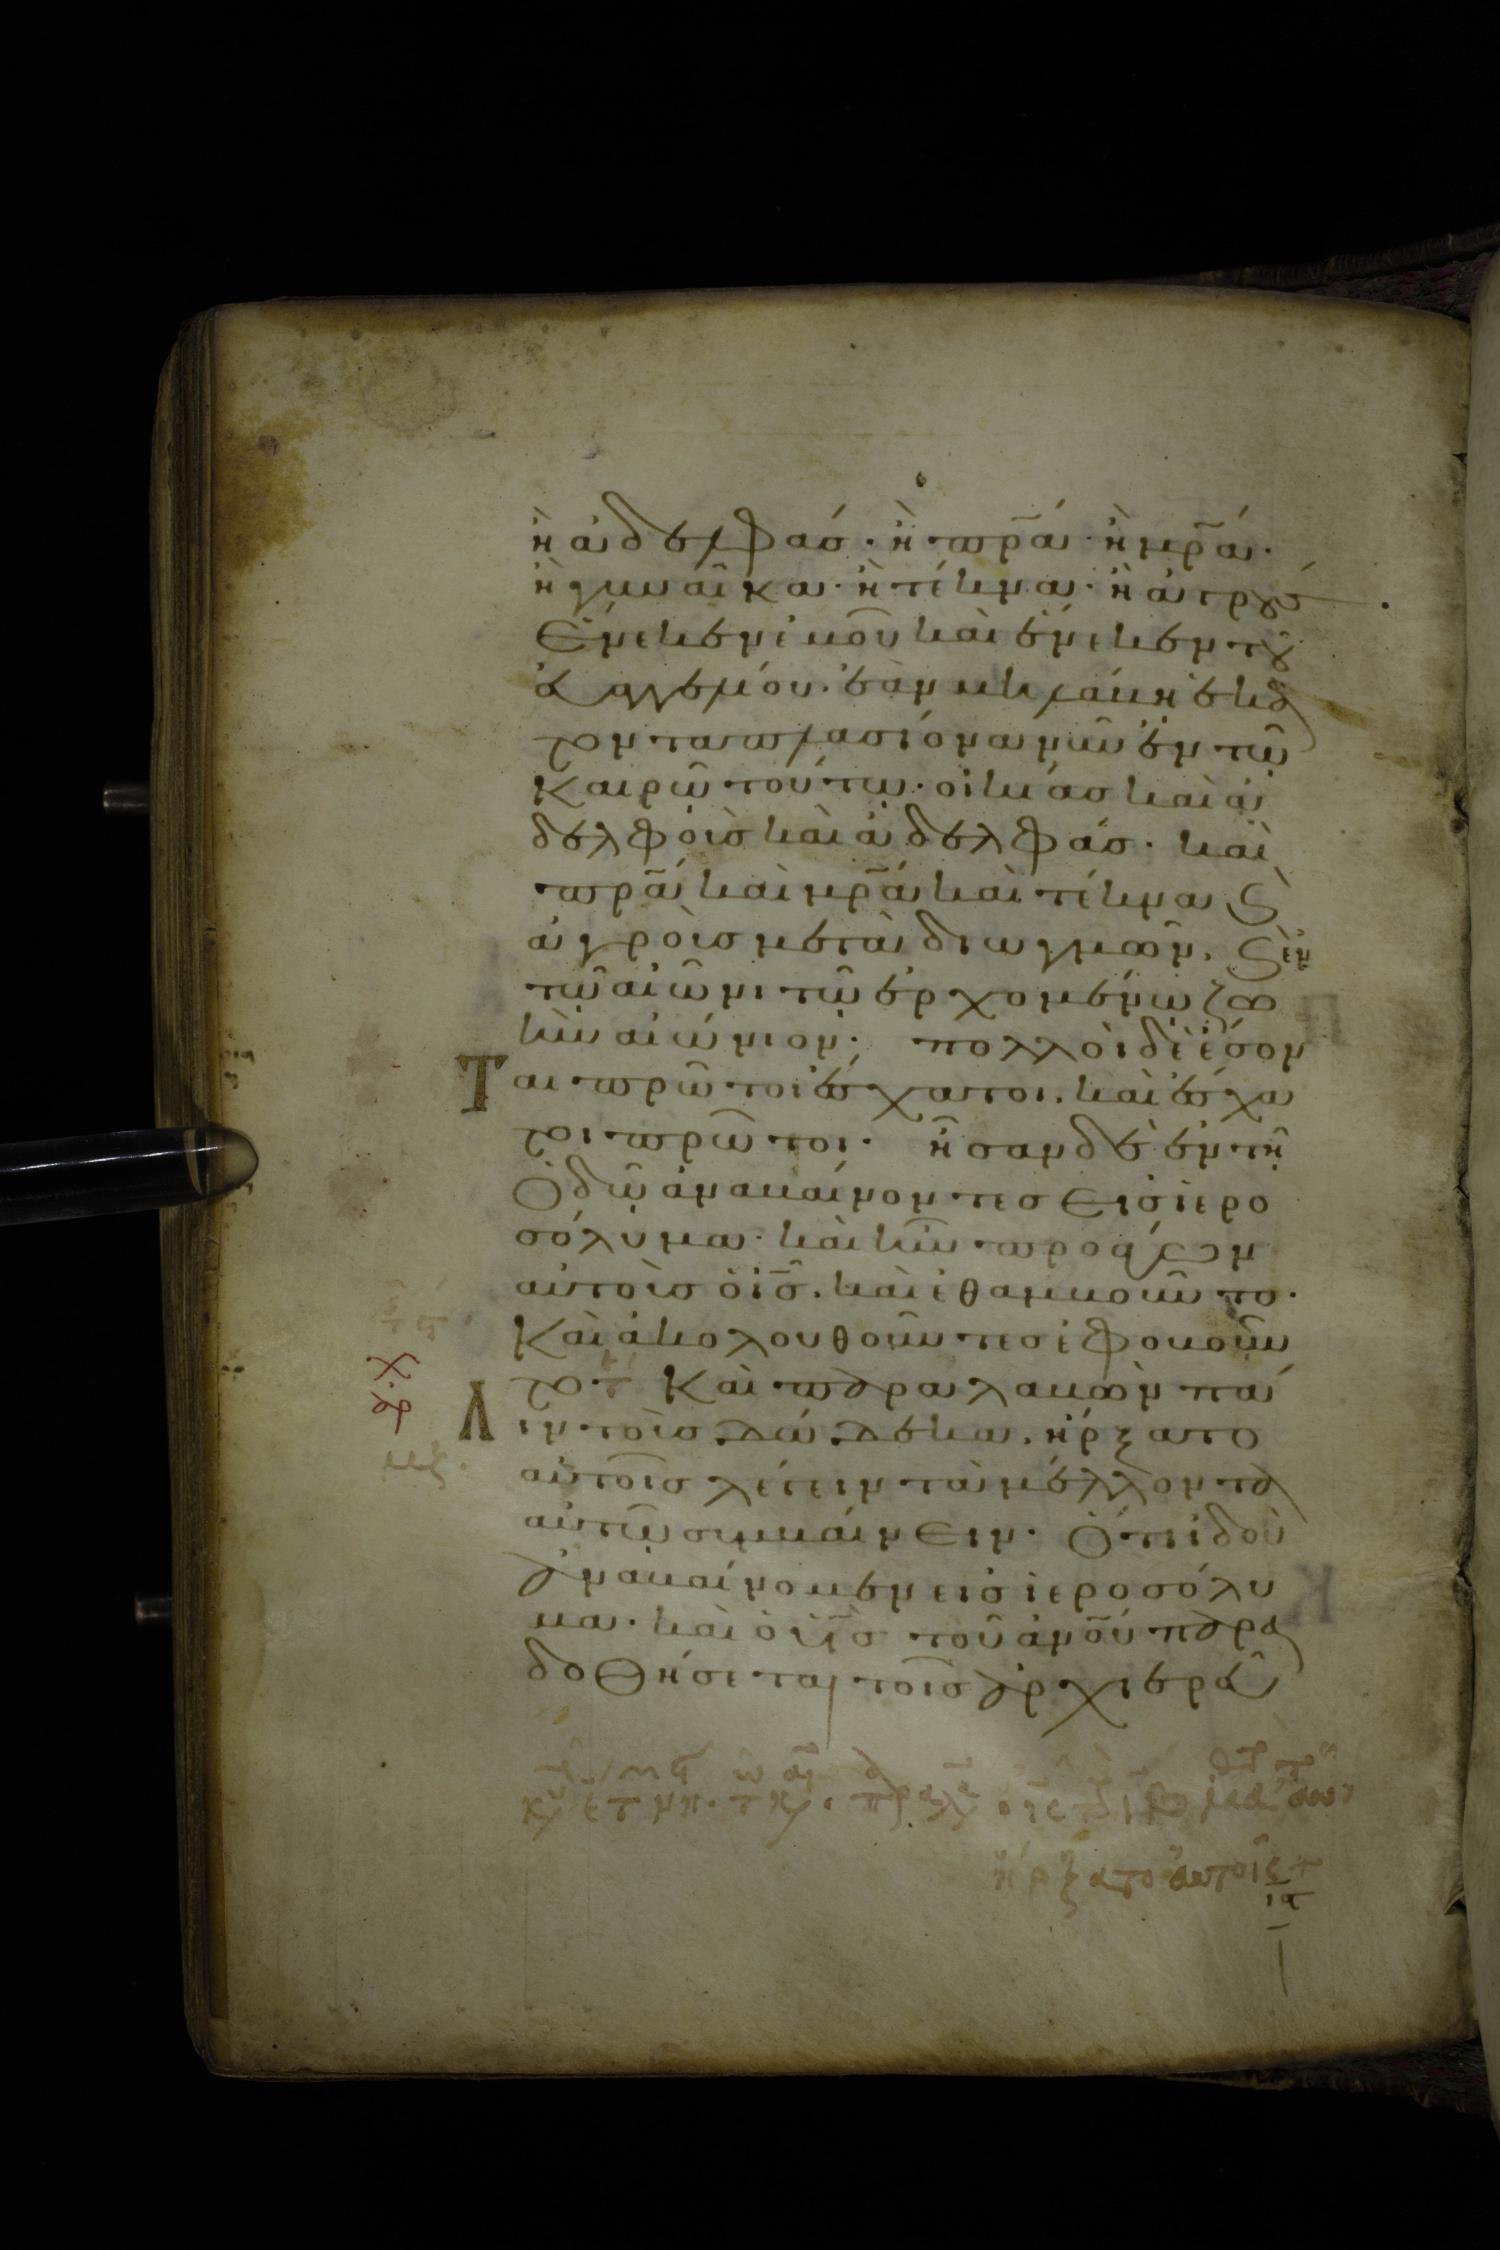 ἢ ἀδελφάσ· ἢ πρ̅α· ἢ μρ̅α·
ἢ γυναῖκα· ἢ τέκνα· ἢ ἀγρούσ
ἕνεκεν ἐμοῦ καὶ ἕνεκεν τοῦ
εὐαγγελίου· ἐὰν μὴ λάβη ἑκα
τονταπλασίονα νῦν ἐν τῶ
καιρῶ τούτω· οἰκίασ καὶ ἀ
δελφοὺσ καὶ ἀδελφάσ· καὶ
πρ̅α καὶ μρ̅α καὶ τέκνα ϗ
ἀγροὺσ μετὰ διωγμῶν, ϗ ἐν
τῶ αἰῶνι τῶ ἐρχομένω ζω
ὴν αἰώνιον· πολλοὶ δὲ ἔσον
Ται πρῶτοι ἔσχατοι, καὶ ἔσχα
τοι πρῶτοι· ἦσαν δὲ ἐν τῆ
ὁδῶ ἀναβαίνοντεσ εἰσ ἱερο
σόλυμα· καὶ ἦν προάγων
αὐτοὺσ ὁ ισ̅, καὶ ἐθαμβοῦντο·
Καὶ ἀκολουθοῦντεσ ἐφοβοῦν
το Καὶ παραλαβὼν πά
Λιν τοὺσ δώδεκα, ἤρξατο
αὐτοῖσ λέγειν τὰ μέλλοντα
αὐτῶ συμβαίνειν· Ὅτι ἰδοὺ
ἀναβαίνομεν εἰσ ἱεροσόλυ
μα· καὶ ὁ υἱ̅σ τοῦ ἀνο̅υ παρα
δοθήσεται τοῖσ ἀρχιερεῦ
ἤρξατο αὐτοῖς